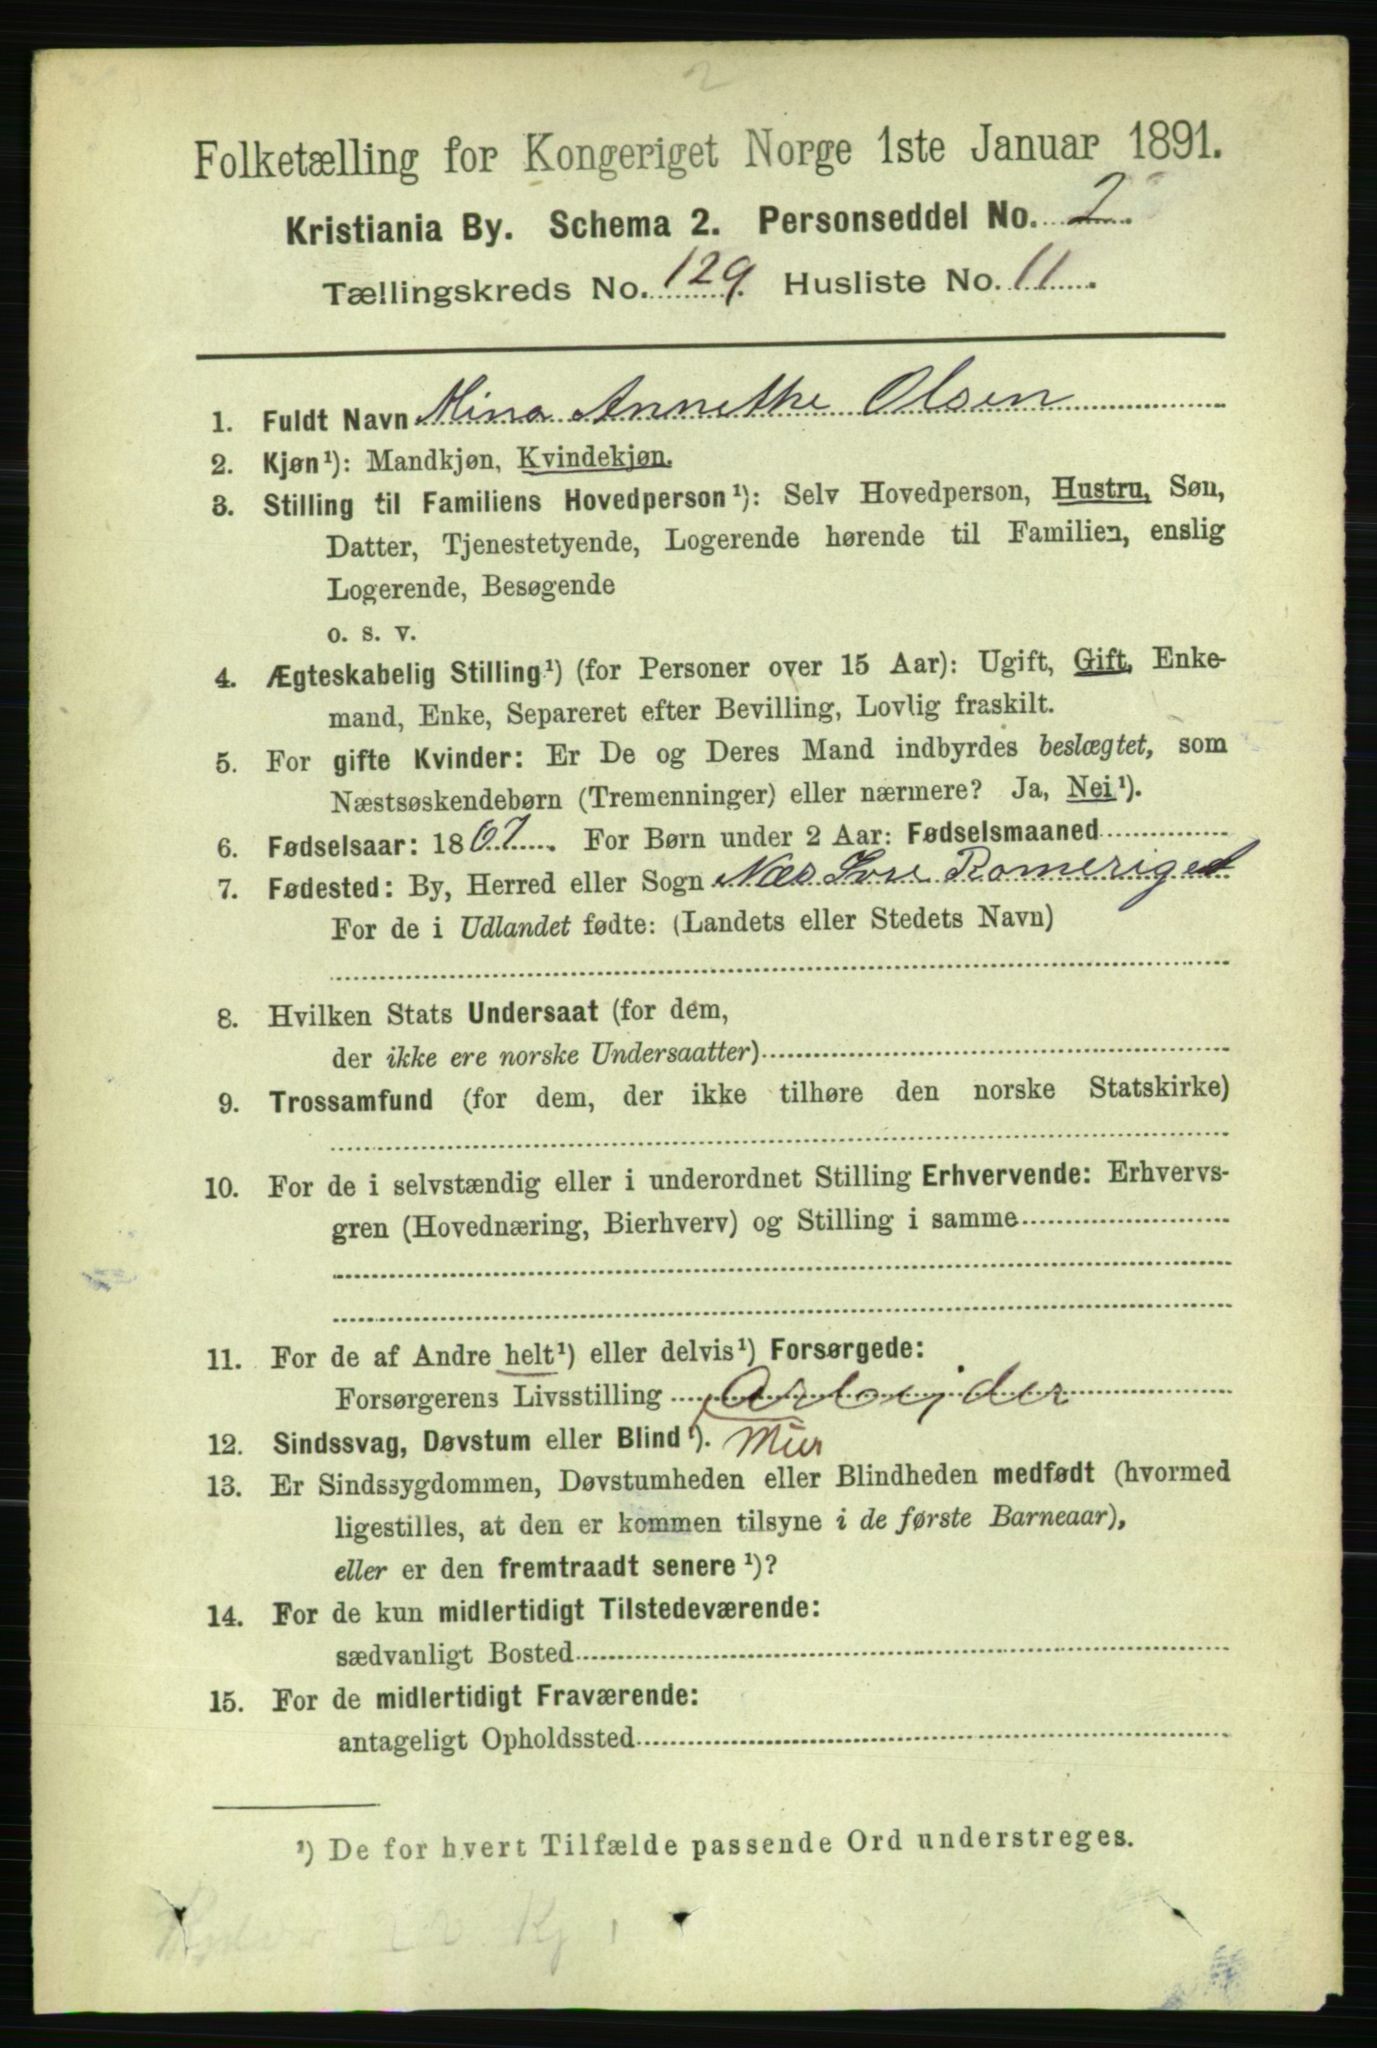 2
Folketælling for Kongeriget Norge 1ste Januar 1891.
Kristiania By. Schema 2. Personseddel No. 2.
Tællingskreds No. 129. Husliste No. 11.
1. Fuldt Navn Mina Annethe Olsen
2. Kjøn¹): Mandkjøn, Kvindekjøn.
3. Stilling til Familiens Hovedperson¹): Selv Hovedperson, Hustru, Søn,
Datter, Tjenestetyende, Logerende hørende til Familien, enslig
Logerende, Besøgende
o. s. v.
4. Ægteskabelig Stilling¹) (for Personer over 15 Aar): Ugift, Gift, Enke-
mand, Enke, Separeret efter Bevilling, Lovlig fraskilt.
5. For gifte Kvinder: Er De og Deres Mand indbyrdes beslægtet, som
Næstsøskendebørn (Tremenninger) eller nærmere? Ja, Nei¹).
6. Fødselsaar: 1867. For Børn under 2 Aar: Fødselsmaaned
7. Fødested: By, Herred eller Sogn Næs Romeriget
For de i Udlandet fødte: (Landets eller Stedets Navn)
8. Hvilken Stats Undersaat (for dem,
der ikke ere norske Undersaatter)
9. Trossamfund (for dem, der ikke tilhøre den norske Statskirke)
10. For de i selvstændig eller i underordnet Stilling Erhvervende: Erhvervs-
gren (Hovednæring, Bierhverv) og Stilling i samme
11. For de af Andre helt¹) eller delvis¹) Forsørgede:
Forsørgerens Livsstilling Arbeijder
12. Sindssvag, Døvstum eller Blind¹). Mur
13. Er Sindssygdommen, Døvstumheden eller Blindheden medfødt (hvormed
ligestilles, at den er kommen tilsyne i de første Barneaar),
eller er den fremtraadt senere¹)?
14. For de kun midlertidigt Tilstedeværende:
sædvanligt Bosted
15. For de midlertidigt Fraværende:
antageligt Opholdssted
¹) De for hvert Tilfælde passende Ord understreges.